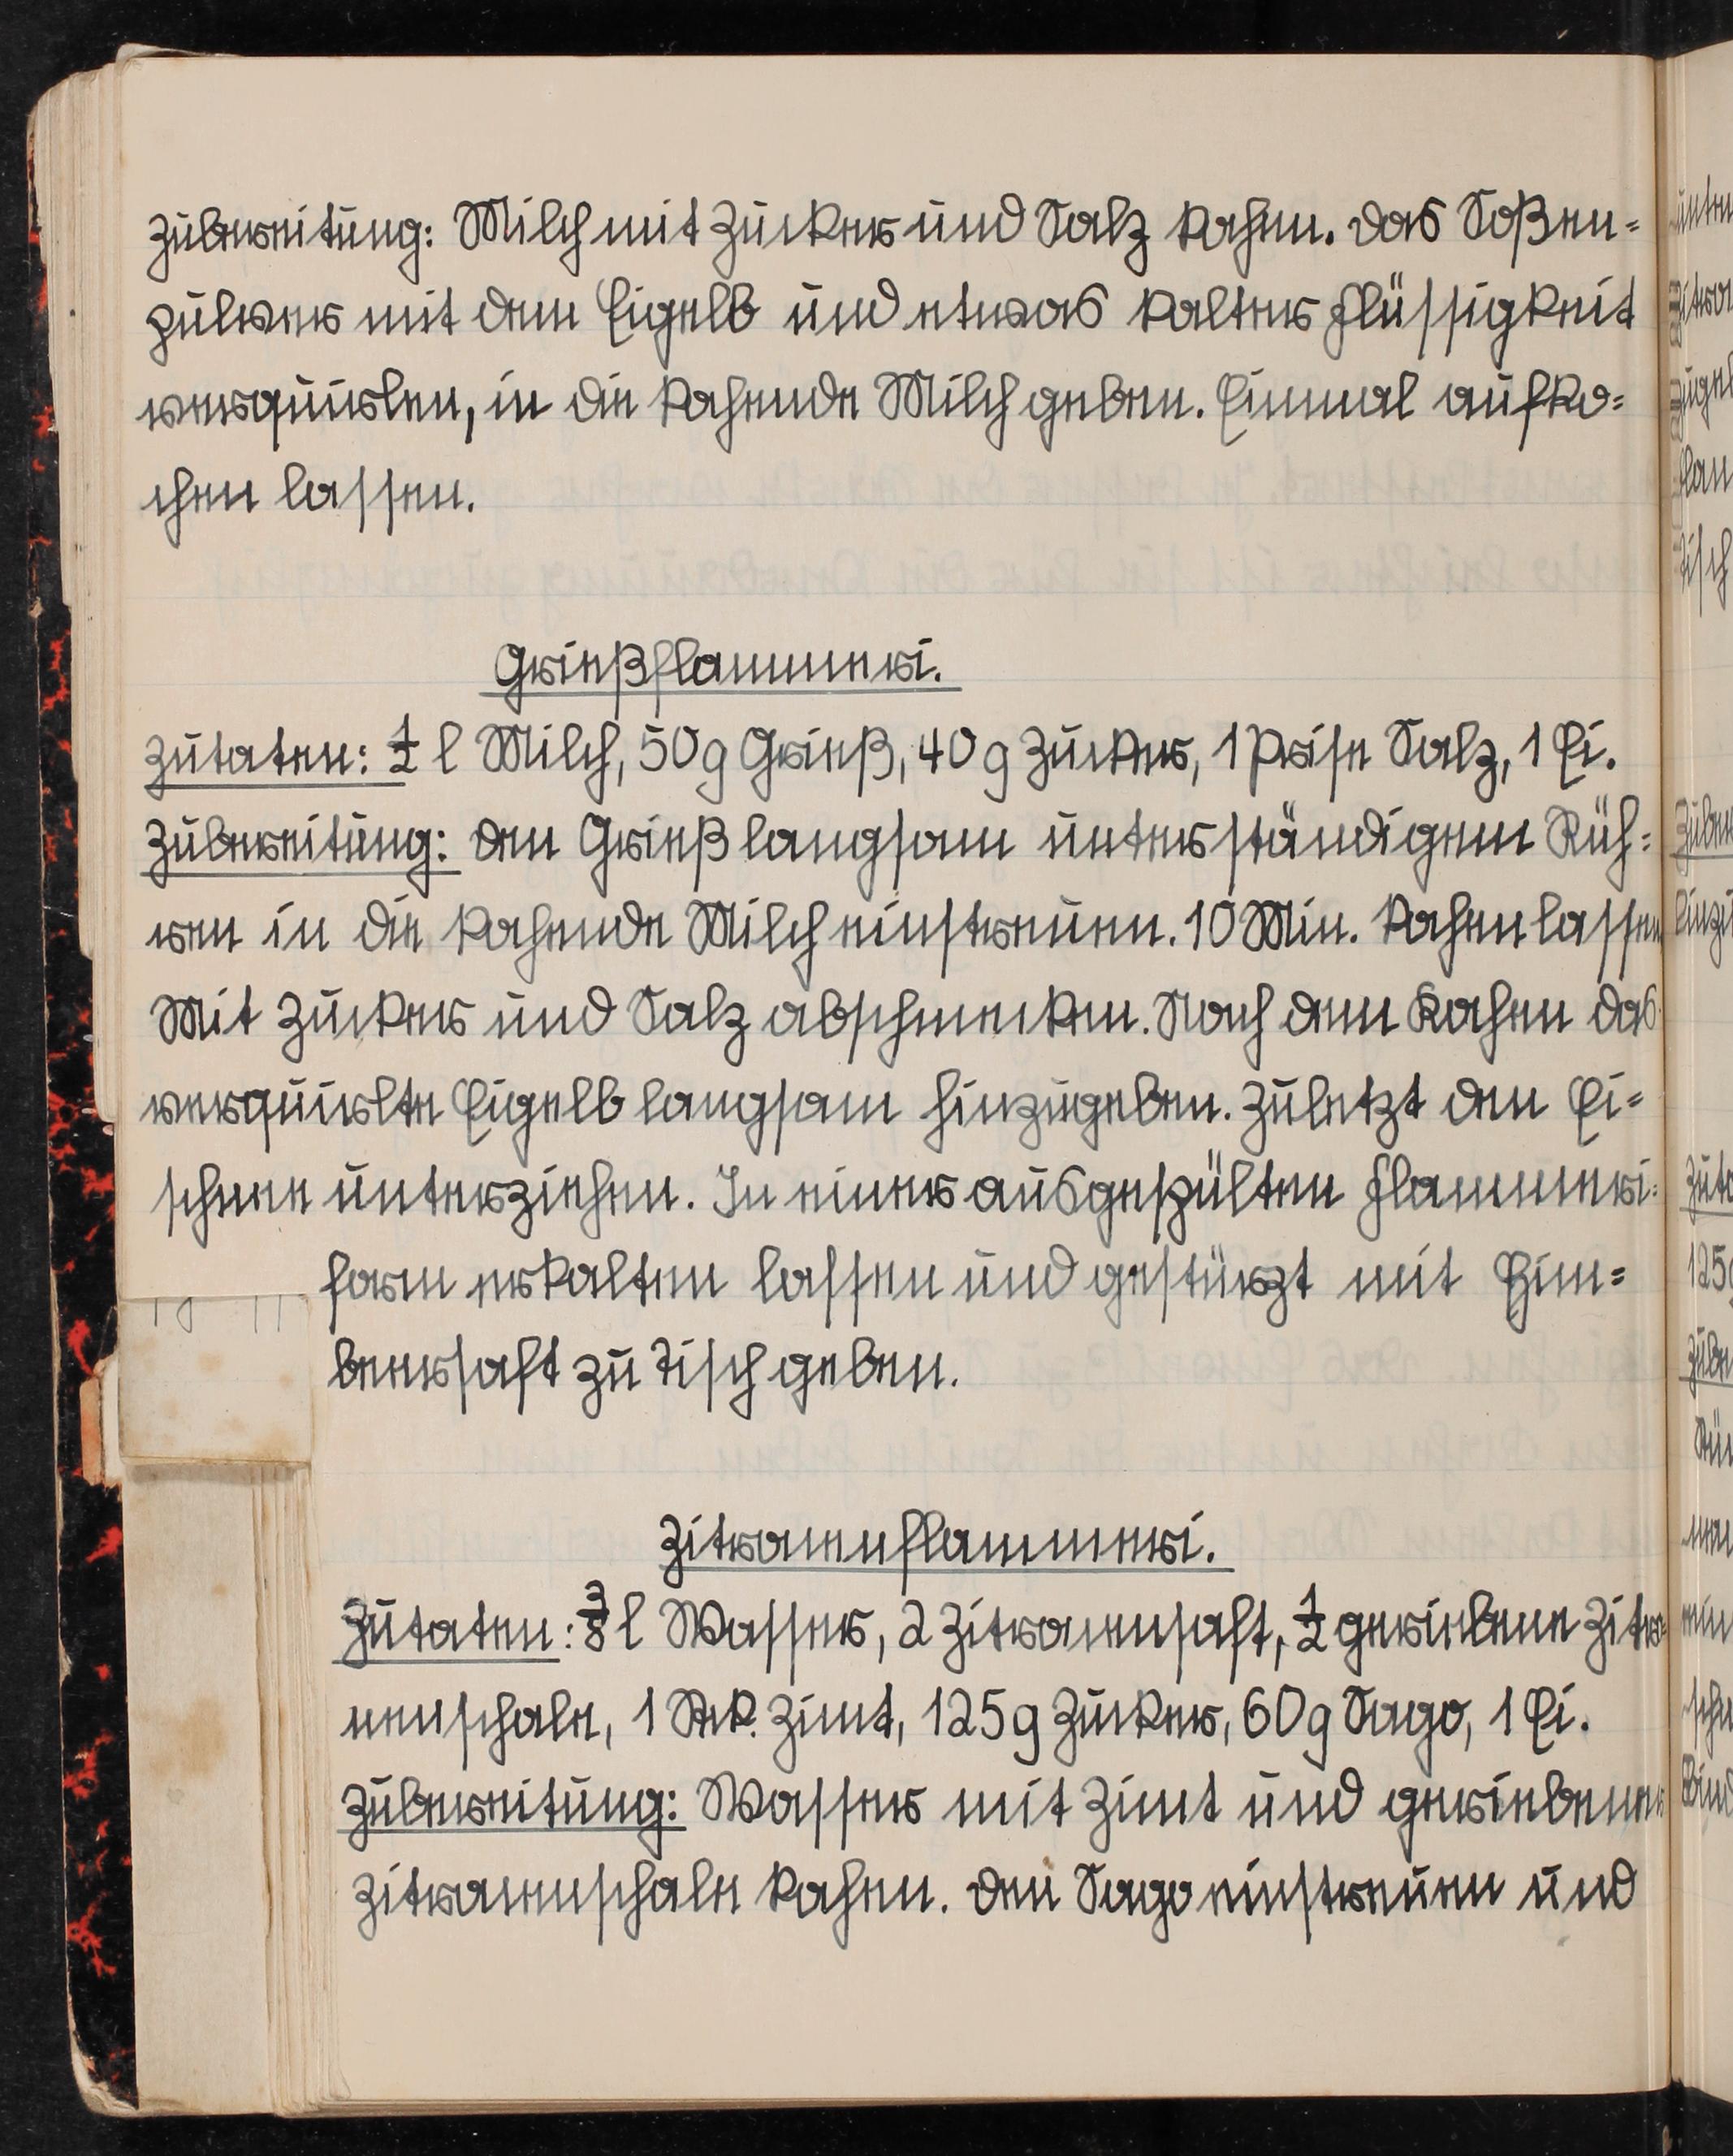 Zubereitung: Milch mit Zucker und Salz kochen. Das Soßen=
pulver mit dem Eigelb und etwas kalter Flüssigkeit
verquirlen, in die kochende Milch geben. Einmal aufko=
chen lassen.
Grießflammeri.
Zutaten: ½ l Milch, 50g Grieß, 40 g Zucker, 1 Prise Salz, 1 Ei.
Zubereitung: Den Grieß langsam unter ständigem Rüh=
ren in die kochende Milch einstreuen. 10 Min. kochen lassen
Mit Zucker und Salz abschmecken. Nach dem Kochen das
verquirlte Eigelb langsam hinzugeben. Zuletzt den Ei=
schnee unterziehen. In einer ausgespülten Flammeri=
form erkalten lassen und gestürzt mit Him=
beersaft zu Tisch geben.
Zitronenflammeri.
Zutaten: ⅜ l Wasser, 2 Zitronensaft, ½ geriebene Zitro=
nenschale, 1 Stck. Zimt, 125g Zucker, 60g Sago, 1 Ei.
Zubereitung: Wasser mit Zimt und geriebener
Zitronenschale kochen. Den Sago einstreuen und